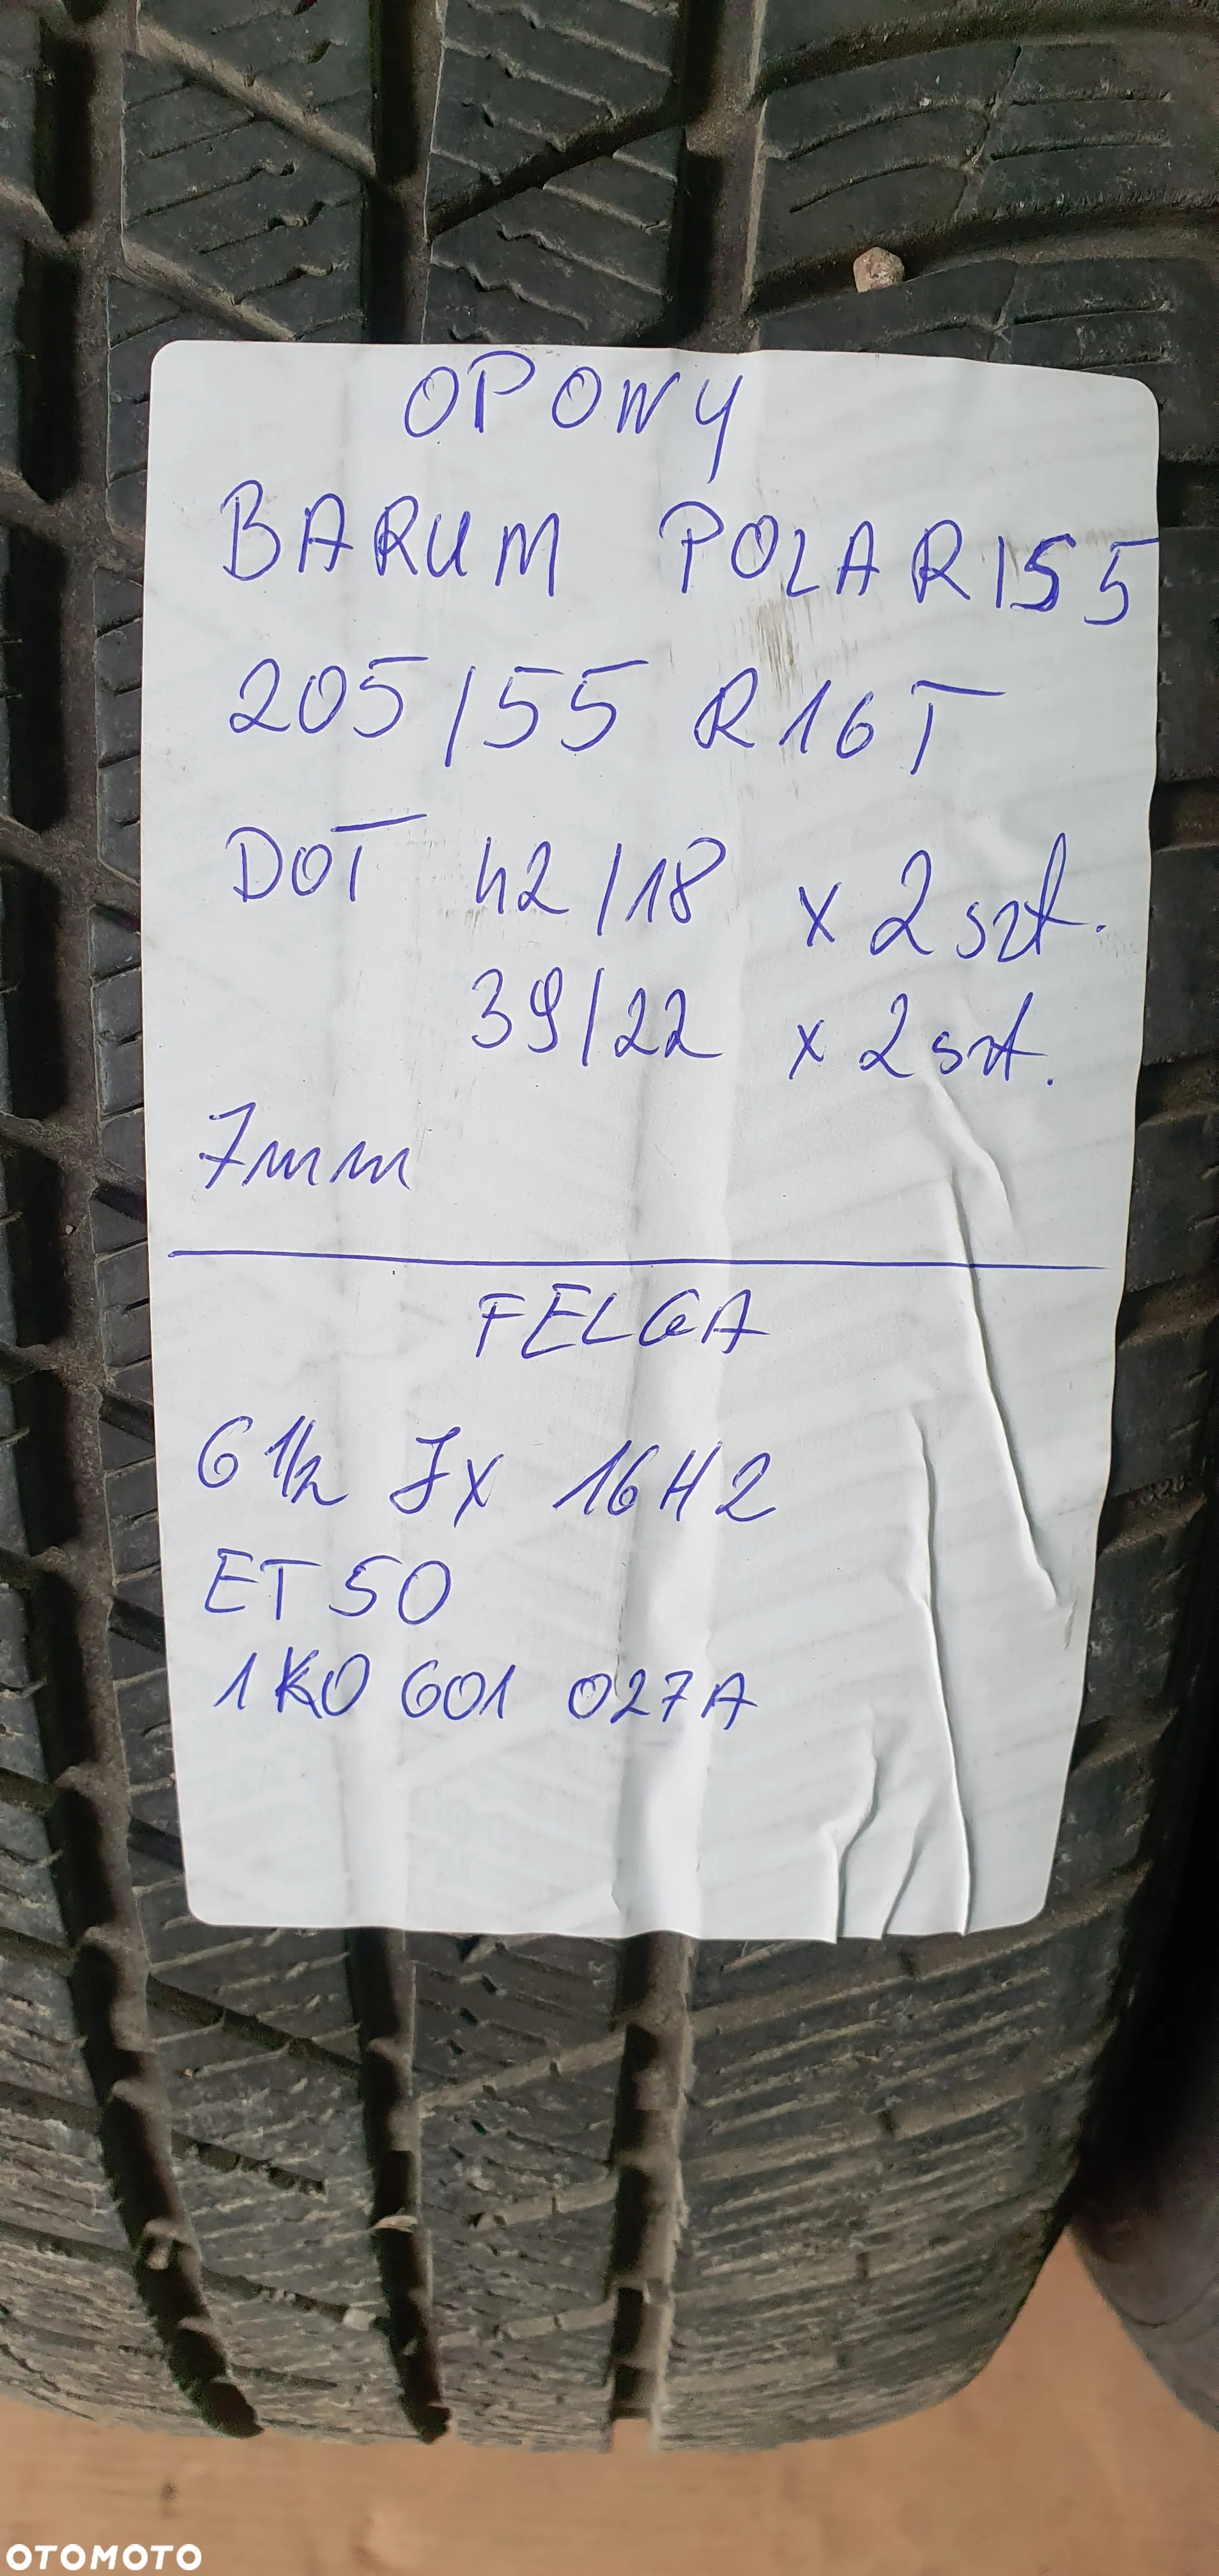 OPONY
BARUM POLARIS 5
205/55 R16T
DOT 42/18 x 2 szt.
39/22 x 2 szt.
7mm
FELGA
6 1/2 Jx 16H2
ET 50
1K0 601 027A
OTOMOTO